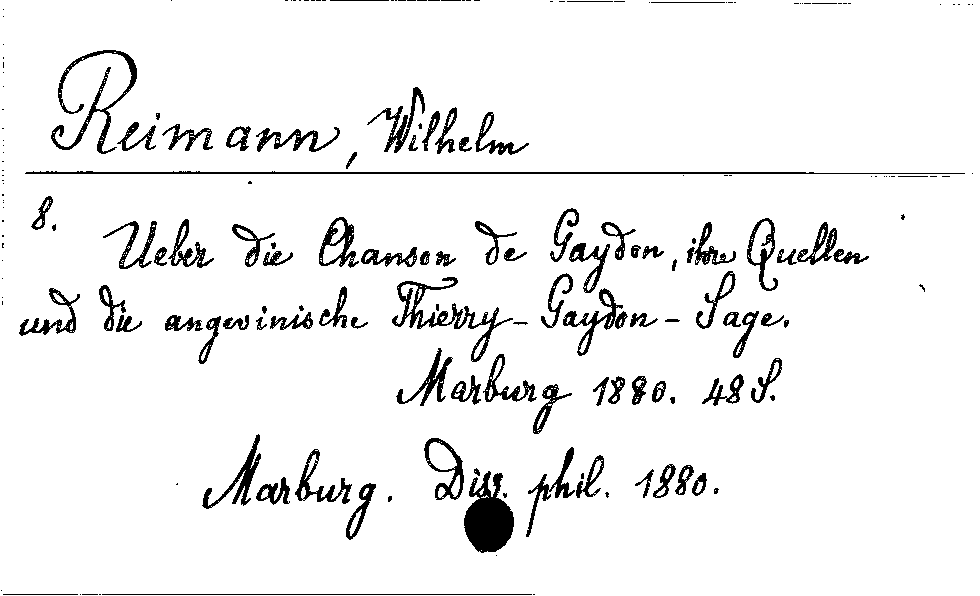 Reimann, Wilhelm
8.
Ueber die Chanson de Gaydon, ihre Quellen
und die angevinische Thierry-Gaydon-Sage.
Marburg 1880. 48 S.
Marburg. Diss. phil. 1880.